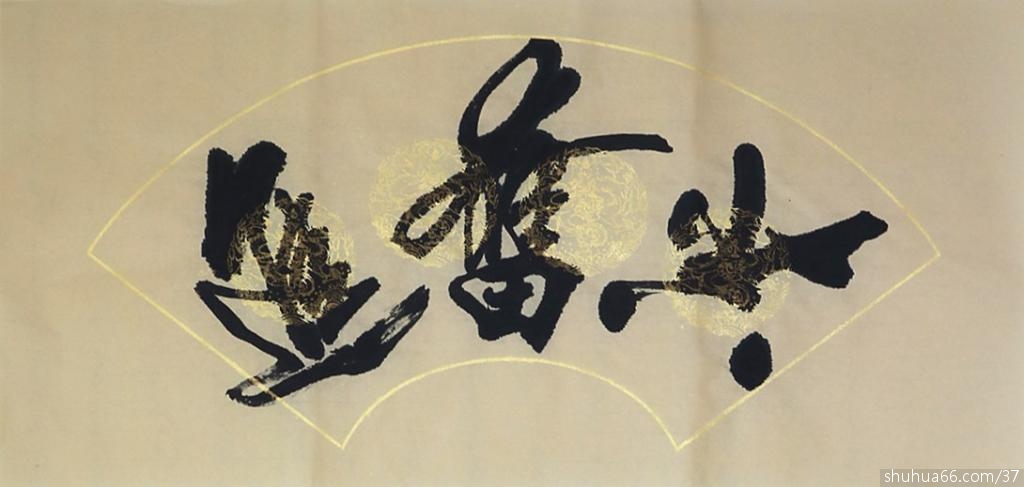 牛奮進
shuhua66.com/37